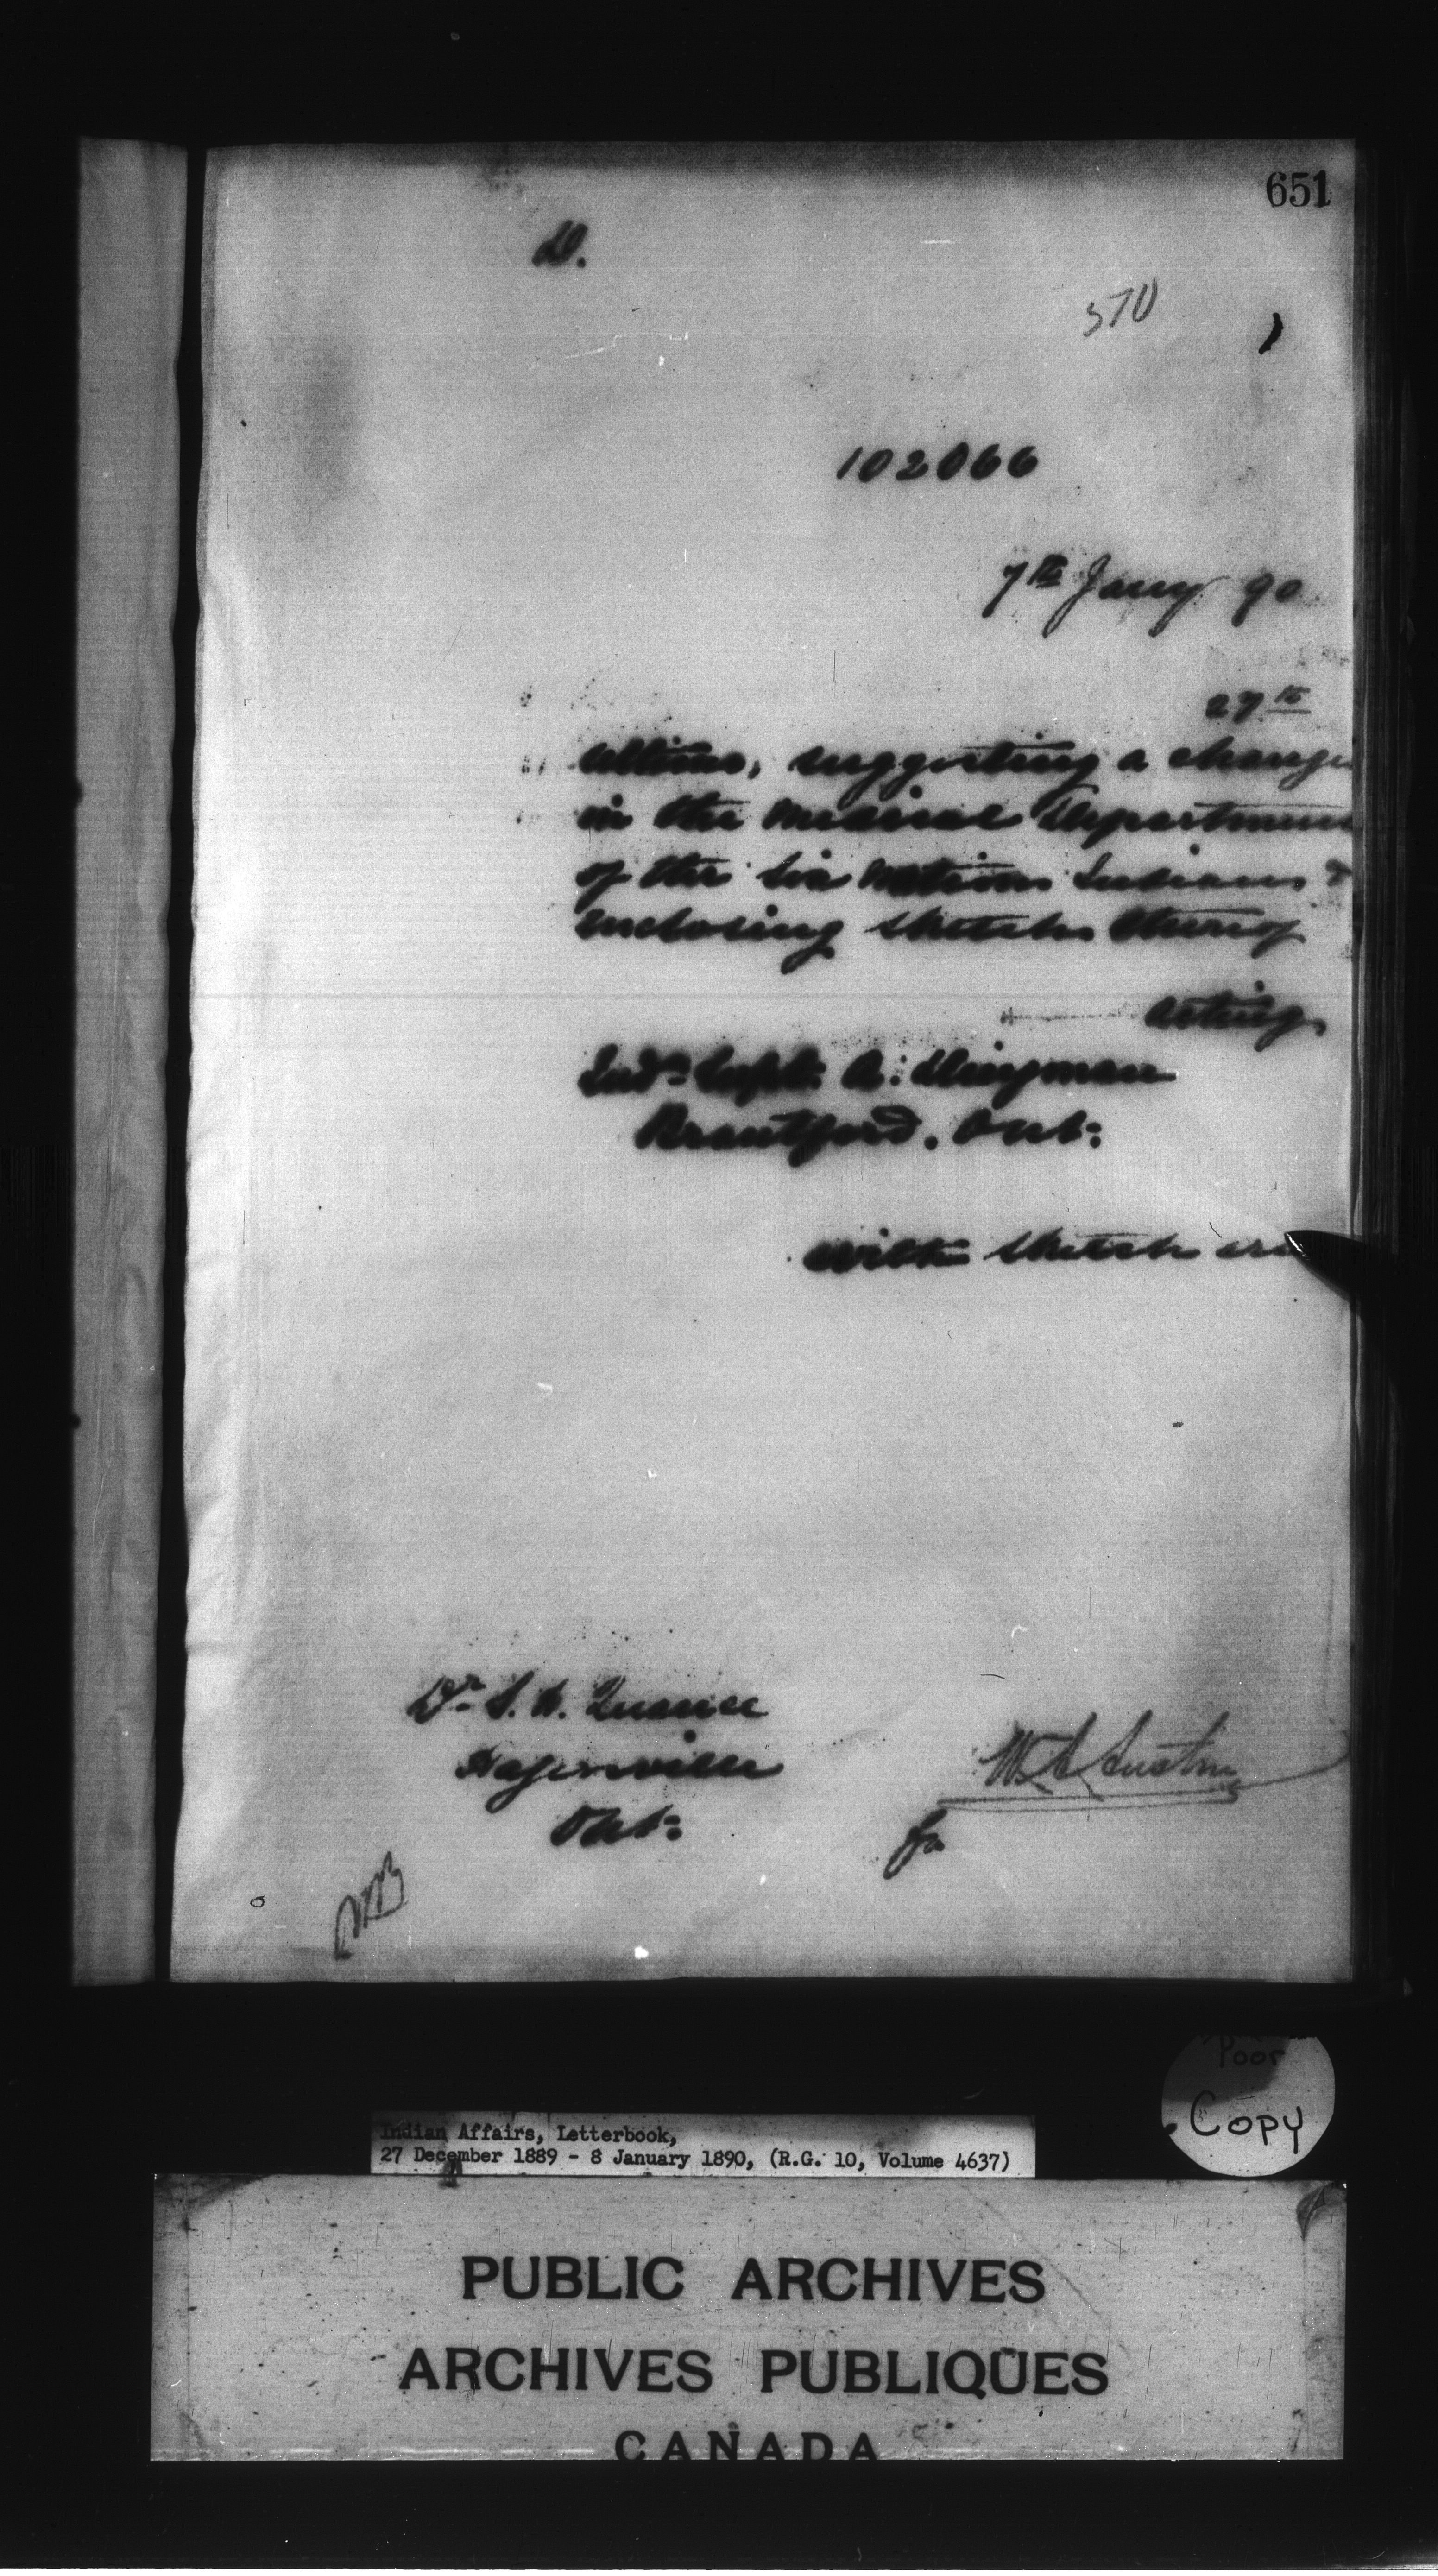 651
D.
570
102066
7th Jany 90
27th
ultimo, suggesting a change
in the Medical Department
of the Six Nations Indians &
enclosing sketch thereof
acting
Ind: Supt: A: Dingman
Brantford. Ont:
with sketch
Dr. S. H.
Hagersville
Ont:
W A Austin
for
Poor
Copy
Indian Affairs, Letterbook,
27 December 1889 - 8 January 1890, (R.G. 10, Volume 4637)
PUBLIC ARCHIVES
ARCHIVES PUBLIQUES
CANADA